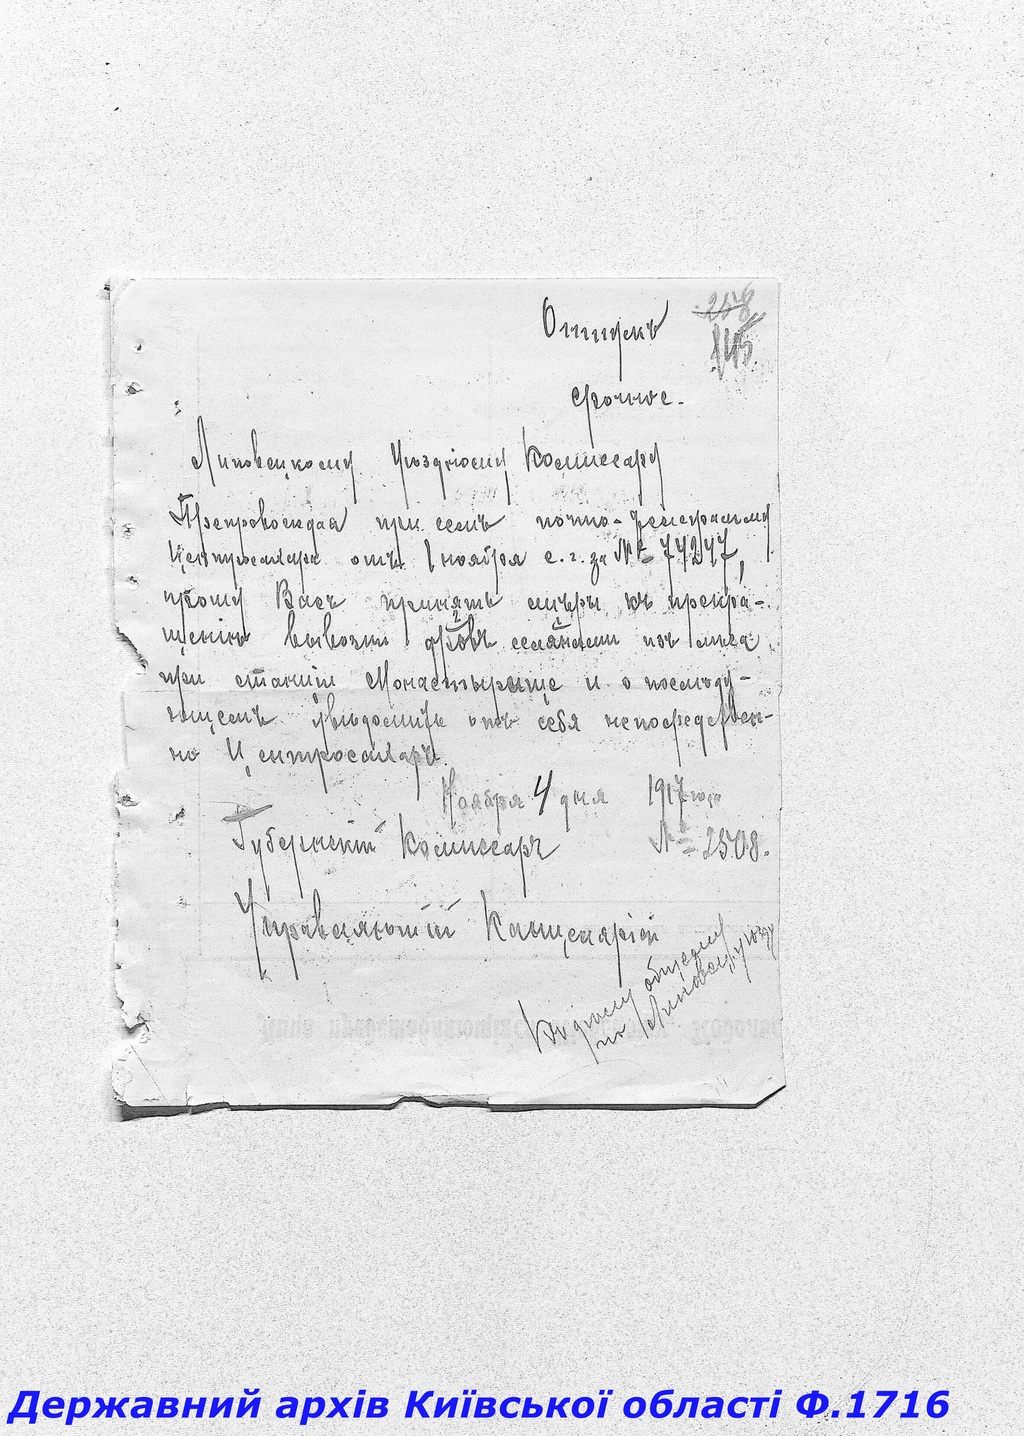 Отпускъ
258
145
Срочное.
Липовецкому Уѣздному Комиссару
Препровождая при семъ почто-телеграмму
Центросахара отъ 1 ноября с. г. за № 74247,
прошу Васъ принять мѣры къ прекра-
щенію вывозки дровъ селянами изъ лѣса
при станціи Монастырище и о послѣду-
ющемъ увѣдомить отъ себя непосредствен-
но Центросахаръ.
Ноября 4 дня 1917 года
Губернскій Комиссаръ № 2508.
Управляющій Канцеляріей
Къ дѣлу общему
по Липовец. уѣзду
Державний архів Київської області Ф.1716